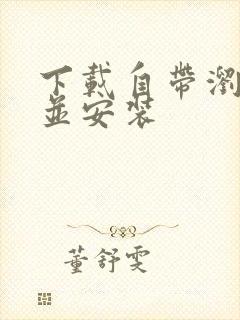 下載自帶瀏
並安裝
董舒雯